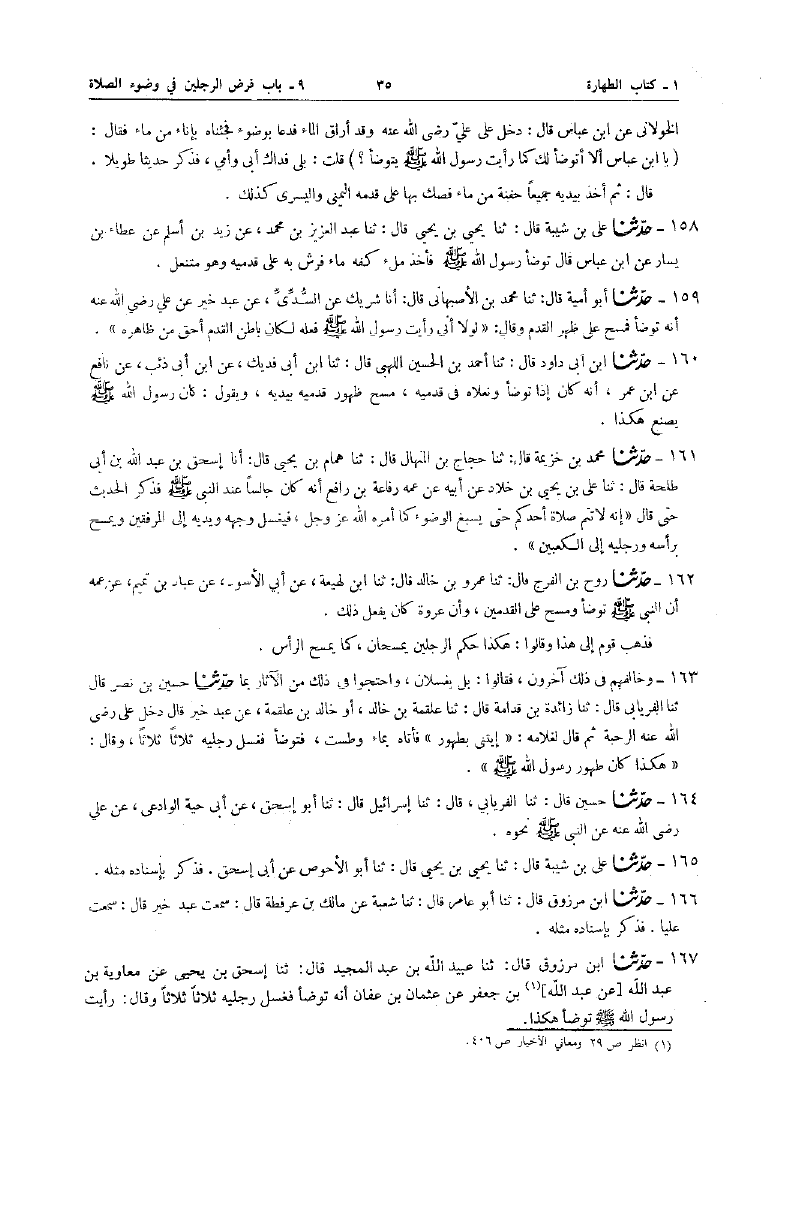 ١ ـ كتاب الطهارة ٣٥ ٩ ـ باب فرض الرجلين في وضوء الصلاة
الخولانى عن ابن عباس قال : دخل على علىّ رضى الله عنه وقد أراق الماء فدعا بوضوء فجئناه بإناء من ماء فقال :
( يا ابن عباس ألا أتوضأ لك كما رأيت رسول الله ﷺ يتوضأ ؟ ) قلت : بلى فداك أبى وأمي ، فذكر حديثا طويلا .
قال : ثم أخذ بيديه جميعاً حفنة من ماء فصك بها على قدمه اليمنى واليسرى كذلك .
١٥٨ ـ حدّثنا على بن شيبة قال : ثنا يحيى بن يحيى قال : ثنا عبد العزيز بن محمد ، عن زيد بن أسلم عن عطاء بن
يسار عن ابن عباس قال توضأ رسول الله ﷺ فأخذ ملء كفه ماء فرش به على قدميه وهو متنعل .
١٥٩ ـ حدّثنا أبو أمية قال: ثنا محمد بن الأصبهانى قال: أنا شريك عن السُّدِّىِّ ، عن عبد خير عن علي رضي الله عنه
أنه توضأ فمسح على ظهر القدم وقال: « لولا أنى رأيت رسول الله ﷺ فعله لكان باطن القدم أحق من ظاهره » .
١٦٠ ـ حدّثنا ابن أبى داود قال : ثنا أحمد بن الحسين اللهبى قال : ثنا ابن أبى فديك ، عن ابن أبى ذئب ، عن نافع
عن ابن عمر ، أنه كان إذا توضأ ونعلاه فى قدميه ، مسح ظهور قدميه بيديه ، ويقول : كان رسول الله ﷺ
يصنع هكذا .
١٦١ ـ حدّثنا محمد بن خزيمة قال: ثنا حجاج بن المنهال قال : ثنا همام بن يحيى قال: أنا إسحق بن عبد الله بن أبى
طلحة قال : ثنا على بن يحيى بن خلاد عن أبيه عن عمه رفاعة بن رافع أنه كان جالساً عند النبي ﷺ فذكر الحديث
حتى قال «إنه لاتتم صلاة أحدكم حتى يسبغ الوضوء كما أمره الله عز وجل ، فيغسل وجهه ويديه إلى المرفقين ويمسح
برأسه ورجليه إلى الكعبين » .
١٦٢ ـ حدّثنا روح بن الفرج قال: ثنا عمرو بن خالد قال: ثنا ابن لهيعة ، عن أبي الأسود ، عن عباد بن تميم، عن عمه
أن النبي ﷺ توضأ ومسح على القدمين ، وأن عروة كان يفعل ذلك .
فذهب قوم إلى هذا وقالوا : هكذا حكم الرجلين يمسحان ، كما يمسح الرأس .
١٦٣ ـ وخالفهم فى ذلك آخرون ، فقالوا : بل يغسلان ، واحتجوا فى ذلك من الآثار بما حدّثنا حسين بن نصر قال
ثنا الفريابى قال : ثنا زائدة بن قدامة قال : ثنا علقمة بن خالد ، أو خالد بن علقمة ، عن عبد خير قال دخل على رضى
الله عنه الرحبة ثم قال لغلامه : « إيتنى بطهور » فأتاه بماء وطست ، فتوضأ فغسل رجليه ثلاثًا ثلاثًا ، وقال :
« هكذا كان طهور رسول الله ﷺ » .
١٦٤ ـ حدّثنا حسين قال : ثنا الفريابي ، قال : ثنا إسرائيل قال : ثنا أبو إسحق ، عن أبى حية الوادعى ، عن علي
رضى الله عنه عن النبي ﷺ نحوه .
١٦٥ ـ حدّثنا على بن شيبة قال : ثنا يحيى بن يحيى قال : ثنا أبو الأحوص عن أبى إسحق . فذكر بإسناده مثله .
١٦٦ ـ حدّثنا ابن مرزوق قال : ثنا أبو عامر قال : ثنا شعبة عن مالك بن عرفطة قال : سمعت عبد خير قال : سمعت
عليا . فذكر بإسناده مثله .
١٦٧ ـ حدّثنا ابن مرزوق قال: ثنا عبيد الله بن عبد المجيد قال: ثنا إسحق بن يحيى عن معاوية بن
عبد الله [عن عبد الله](١) بن جعفر عن عثمان بن عفان أنه توضأ فغسل رجليه ثلاثاً ثلاثاً وقال: رأيت
رسول الله ﷺ توضأ هكذا.
(١) انظر ص ٢٩ ومعاني الأخبار ص ٤٠٦.